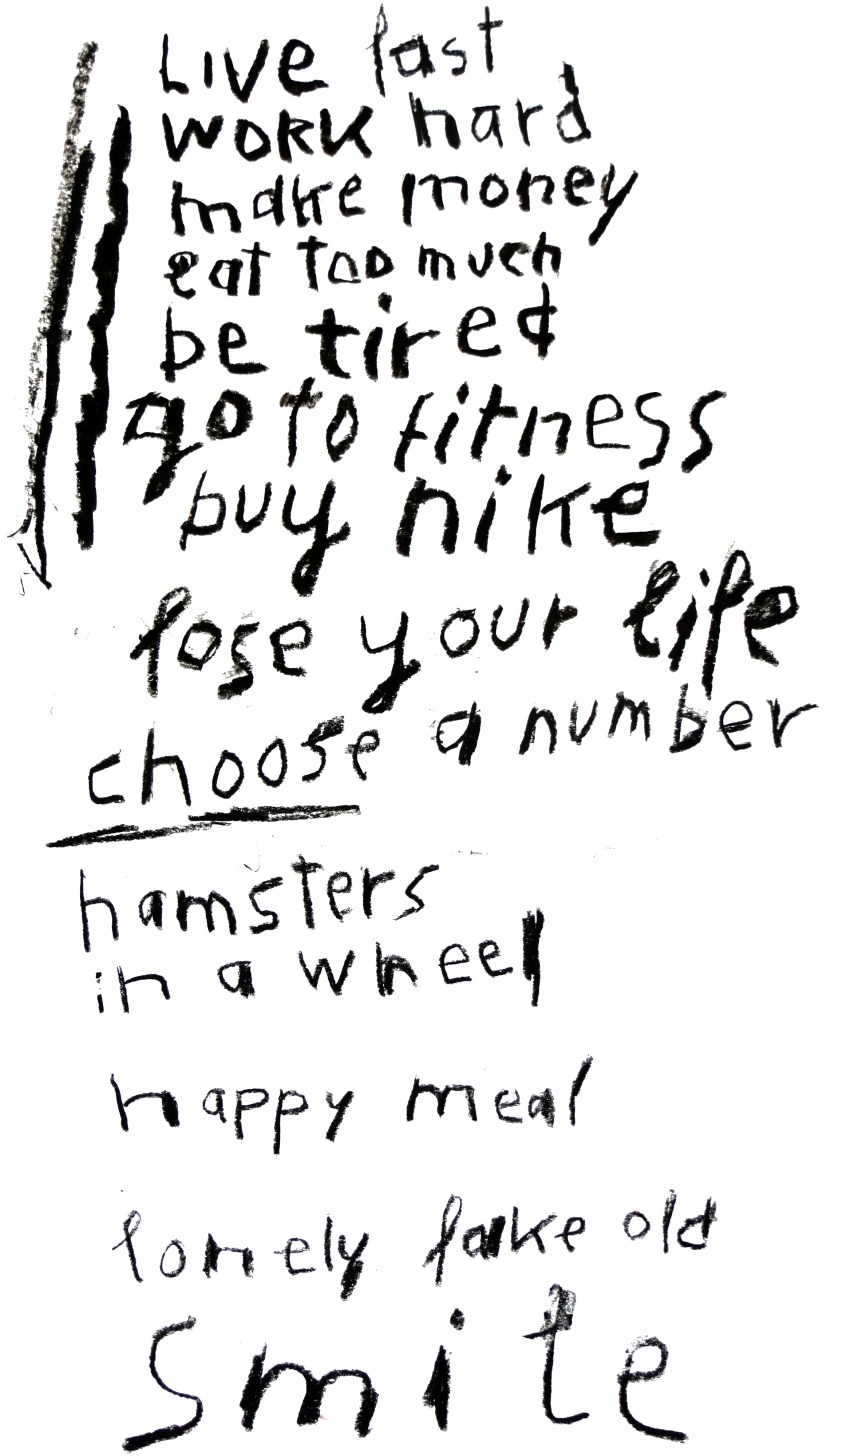 Live fast
work hard
make money
eat too much
be tired
go to fitness
buy nike
lose your life
choose a number
hamsters
in a wheel
happy meal
lonely fake old
smile